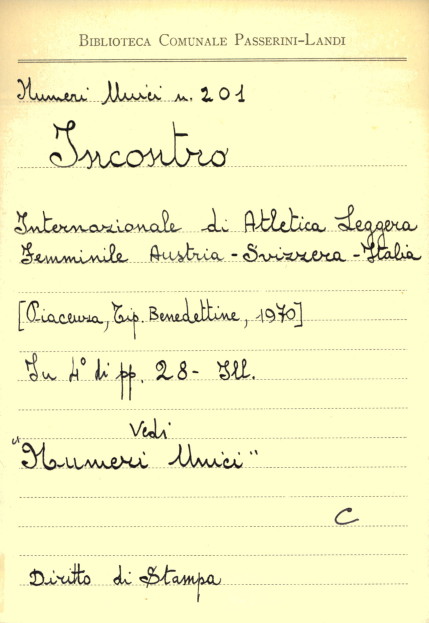 BIBLIOTECA COMUNALE PASSERINI-LANDI
Numeri Unici n. 201
Incontro
Internazionale di Atletica Leggera
Femminile Austria - Svizzera - Italia
[Piacenza, Tip. Benedettine, 1970]
In 4° di pp. 28 - Ill.
Vedi
"Numeri Unici"
C
Diritto di Stampa